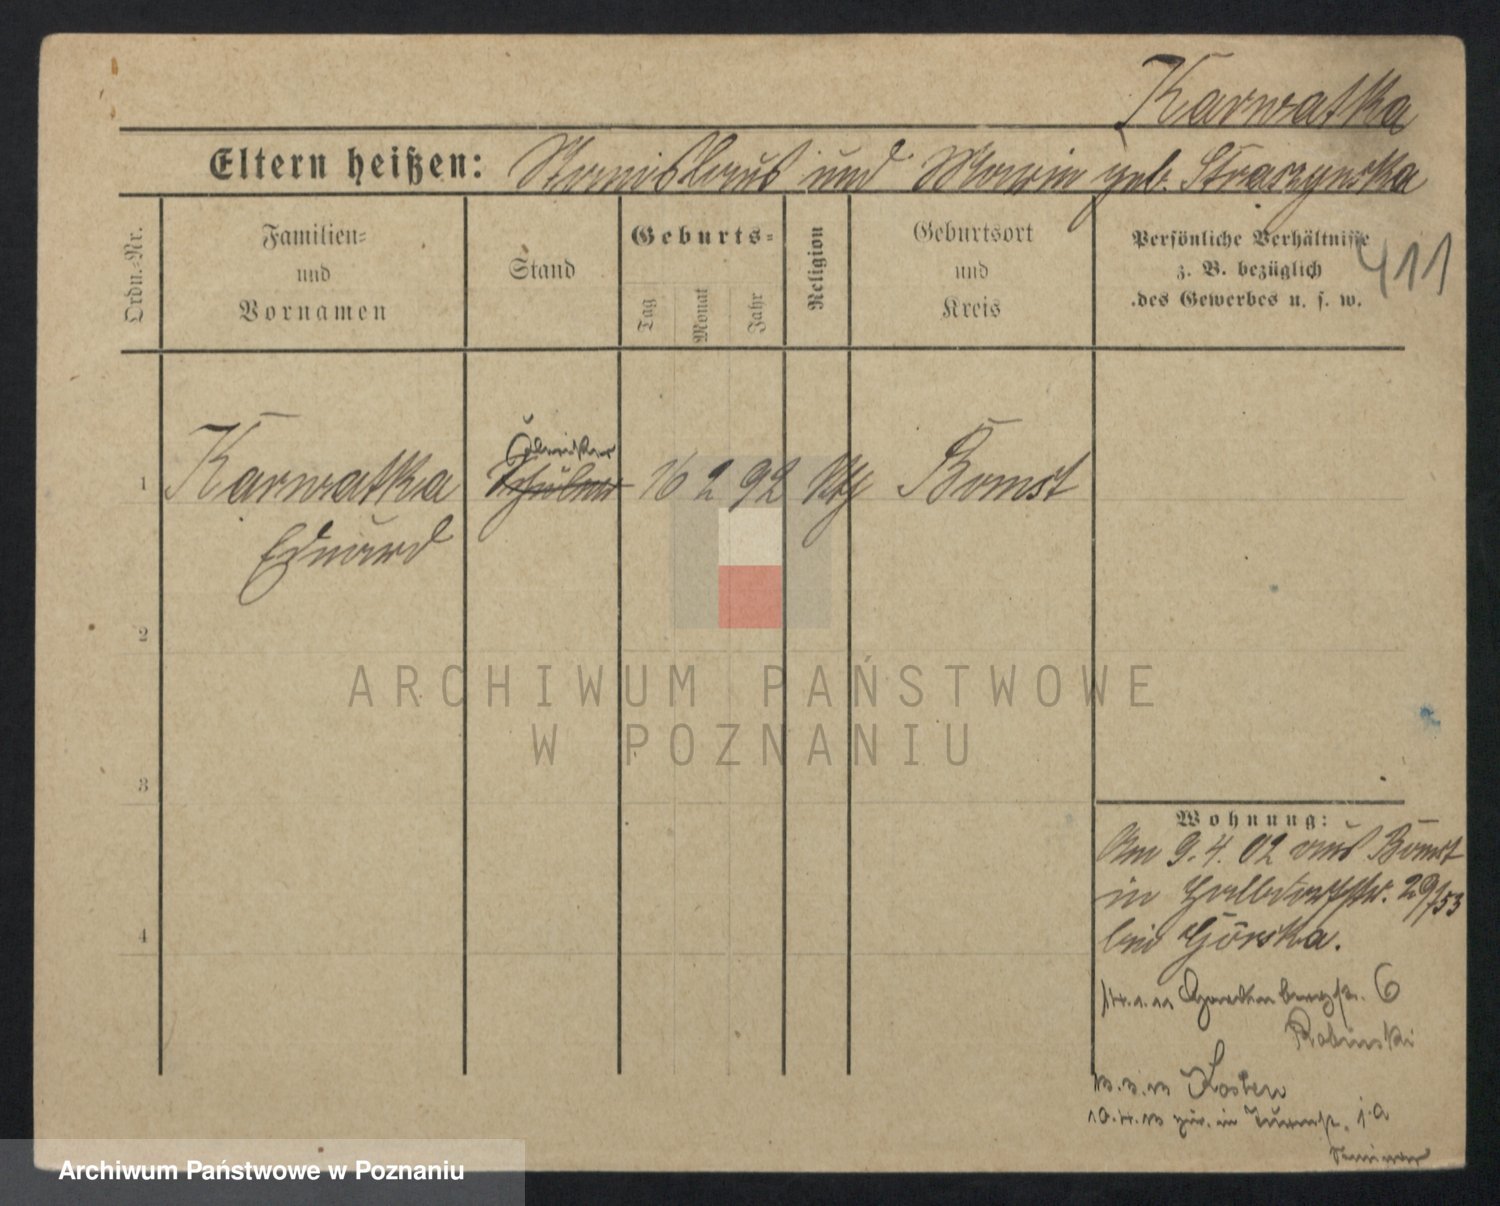 Karwatka
Eltern heißen: Stanislaus und Maria geb. Straszynska
411
Ordn.-Nr.
Familien-
und
Vornamen
Stand
Geburts-
Tag
Monat
Jahr
Religion
Geburtsort
und
Kreis
Persönliche Verhältnisse
z. B. bezüglich
des Gewerbes u. s. w.
1
Karwatka
Eduard
Schüler
16 2 92
kth
Bomst
2
3
4
Wohnung:
Am 9.4.02 aus Bomst
in Halbdorfstr. 29/53
bei Górska.
14.1.11 6
Rabinski
Kosten
10.4.13 zur. in
Seminar
ARCHIWUM PAŃSTWOWE
W POZNANIU
Archiwum Państwowe w Poznaniu